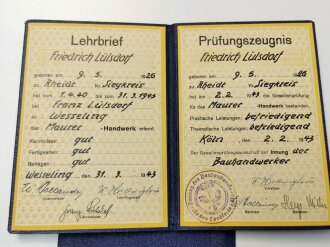 Lehrbrief
Friedrich Lülsdorf
geboren am 9. 5. 1926
zu Rheidt Kr. Siegkreis
hat vom 1.4.40 bis 31.3.1943
bei Franz Lülsdorf
zu Wesseling
das Maurer - Handwerk erlernt.
Kenntnisse: gut
Fertigkeiten: gut
Betragen: gut
Wesseling, 31. 3. 1943
Prüfungszeugnis
Friedrich Lülsdorf
geboren am 9. 5. 1926
zu Rheidt Kr. Siegkreis
hat am 2.2. 1943 die Gesellenprüfung
für das Maurer - Handwerk bestanden.
Praktische Leistungen: befriedigend
Theoretische Leistungen: befriedigend
Köln, 2. 2. 1943
Der Gesellenprüfungsausschuß der Innung der
Bauhandwerker